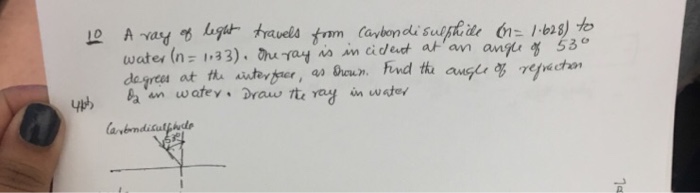 10 A ray of light travels from Carbondisulphide (n = 1.628) to
water (n = 1.33). The ray is incident at an angle of 53°
degrees at the interface, as shown. Find the angle of refraction
θ2 in water. Draw the ray in water
Carbondisulphide
53°